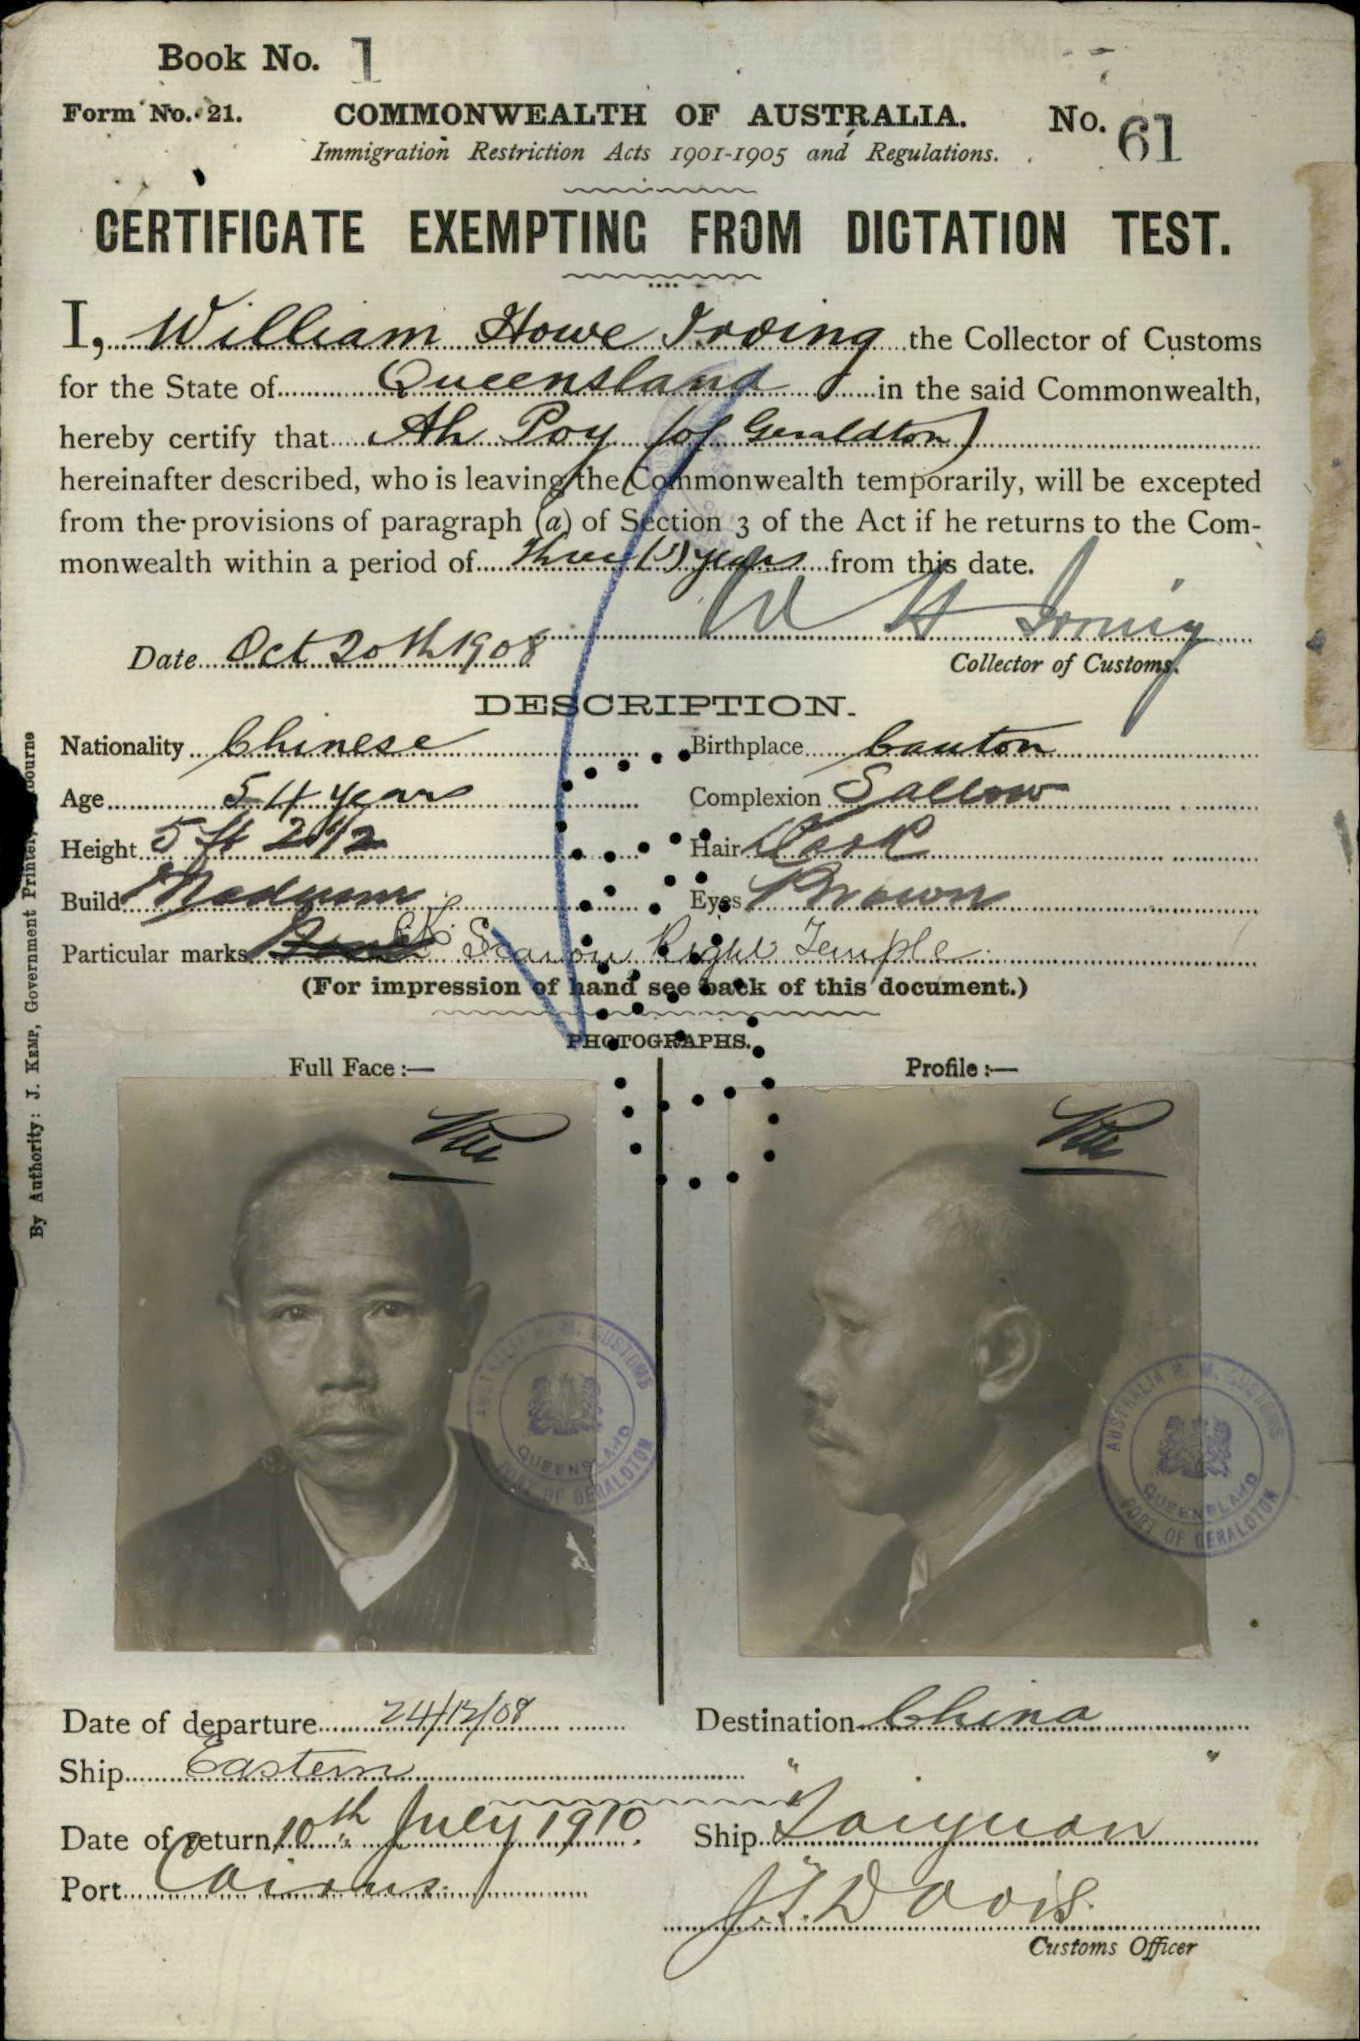 Book No. 1
Form No. 21.
COMMONWEALTH OF AUSTRALIA.
No. 61
Immigration Restriction Acts 1901-1905 and Regulations.
CERTIFICATE EXEMPTING FROM DICTATION TEST.
I, William Howe Irving the Collector of Customs
for the State of Queensland in the said Commonwealth,
hereby certify that Ah Poy (of Geraldton)
hereinafter described, who is leaving the Commonwealth temporarily, will be excepted
from the provisions of paragraph (a) of Section 3 of the Act if he returns to the Com-
monwealth within a period of three (3) years from this date.
W H Irving
Date Oct 20th 1908
Collector of Customs.
DESCRIPTION.
Nationality Chinese Birthplace Canton
Age 54 years Complexion Sallow
Height 5 ft 2 1/2 Hair Dark
Build Medium Eyes Brown
Particular marks Scar on Right Temple
(For impression of hand see back of this document.)
PHOTOGRAPHS.
Full Face :—
Profile :—
AUSTRALIA H. M. CUSTOMS
QUEENSLAND
PORT OF GERALDTON
AUSTRALIA H. M. CUSTOMS
QUEENSLAND
PORT OF GERALDTON
Date of departure 24/12/08 Destination China
Ship Eastern
Date of return 10th July 1910. Ship "Taiyuan"
Port Cairns.
J.T. Davis.
Customs Officer
By Authority: J. KEMP, Government Printer,